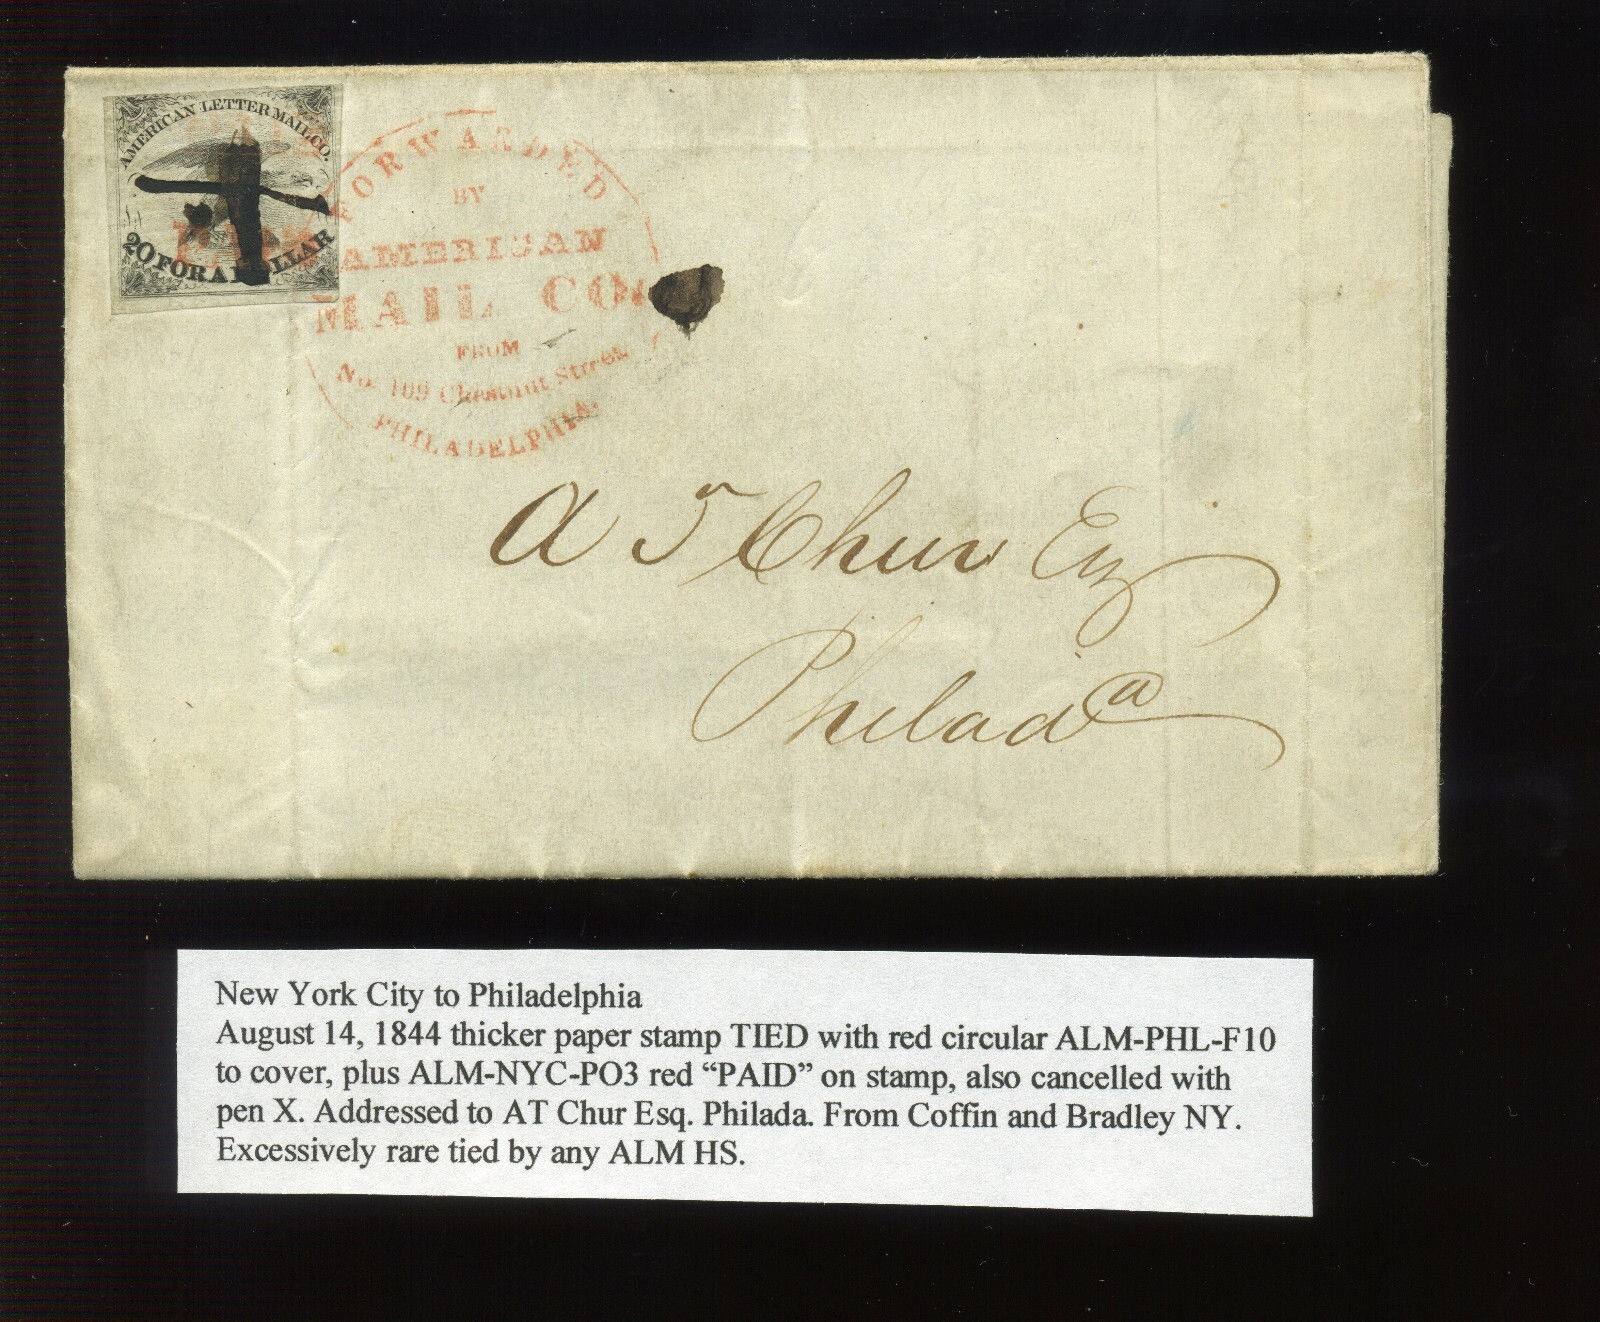 AMERICAN LETTER MAIL CO.
20 FOR A DOLLAR
PAID
FORWARDED
BY
AMERICAN
MAIL CO.
FROM
No. 109 Chestnut Street
PHILADELPHIA.
A T Chur Esq
Philada
New York City to Philadelphia
August 14, 1844 thicker paper stamp TIED with red circular ALM-PHL-F10
to cover, plus ALM-NYC-PO3 red “PAID” on stamp, also cancelled with
pen X. Addressed to AT Chur Esq. Philada. From Coffin and Bradley NY.
Excessively rare tied by any ALM HS.